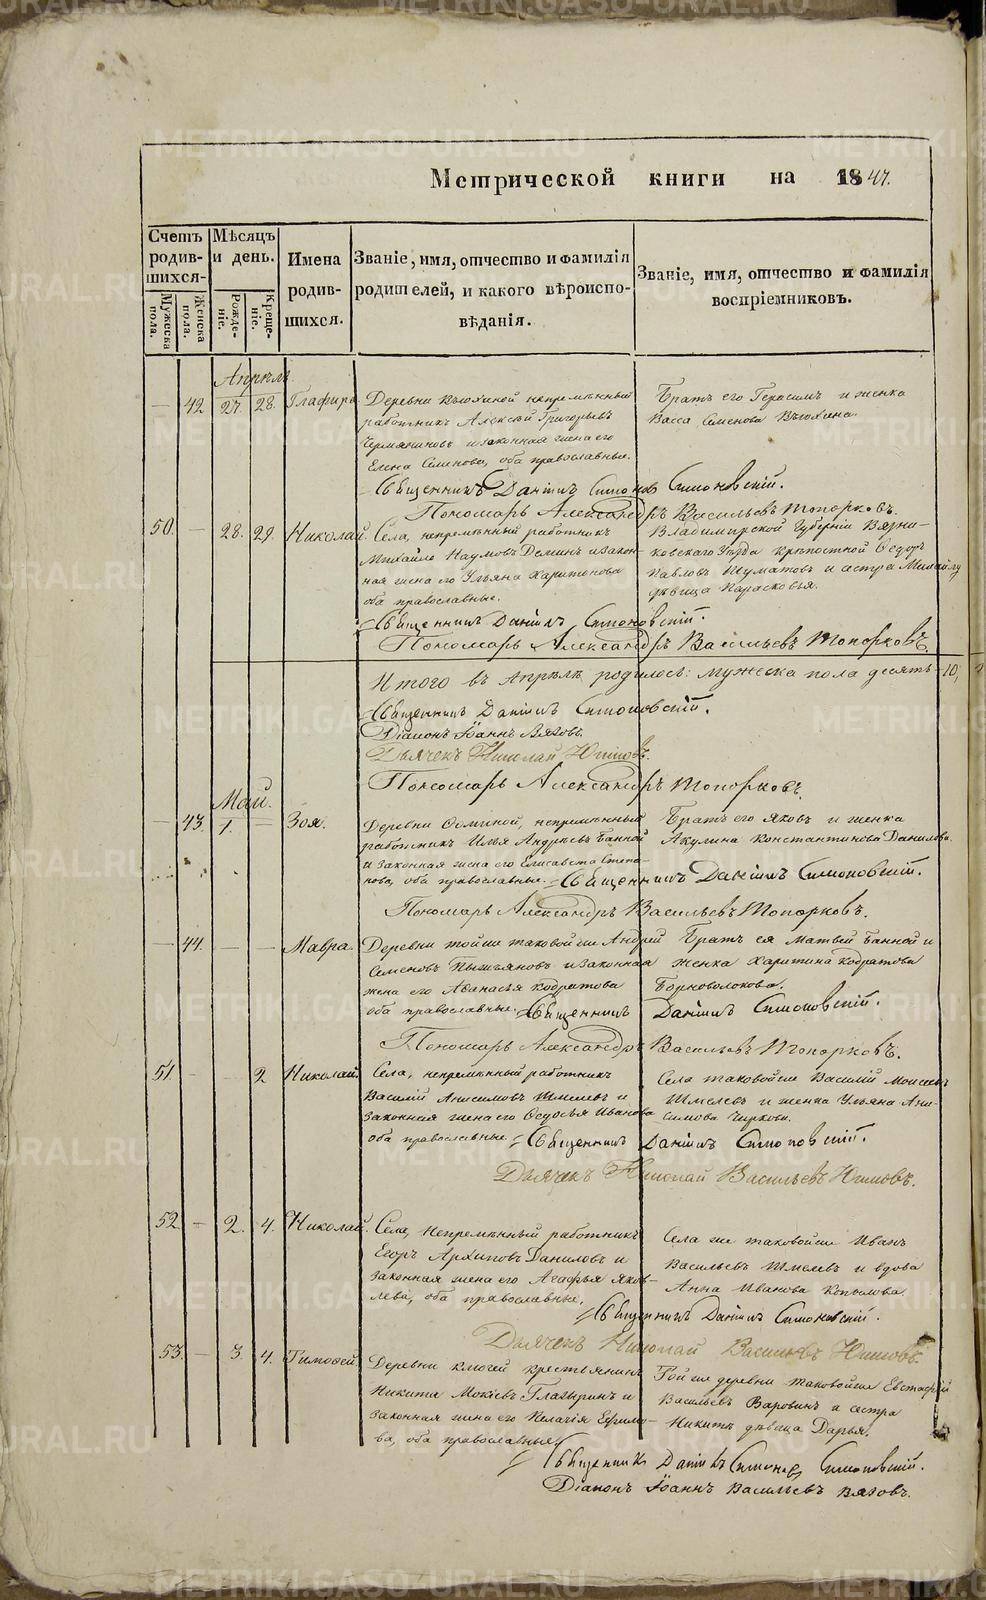 Метрической книги на 1847.
Счетъ родив-шихся.
Мужеска пола.
Женска пола.
Мѣсяцъ и день.
Рожде-ніе.
Креще-ніе.
Имена родив-шихся.
Званіе, имя, отчество и фамилія родителей, и какого вѣроиспо-вѣданія.
Званіе, имя, отчество и фамилія воспріемниковъ.
Апрѣль
— 42 27. 28. Глафира.
Деревни непремѣнный
работникъ Алексѣй Григорьевъ
и законная жена его
Елена Семенова, оба православные.
Братъ его Герасимъ и женка
Васса Семенова
Священникъ Даніилъ Симоновскій.
Пономарь Александръ Васильевъ Топорковъ.
50. — 28. 29. Николай.
Села, непремѣнный работникъ
Михайло Наумовъ Деминъ и закон-
ная жена его Ульяна Харитонова
оба православные.
Владимирской Губерніи Вязни-
ковскаго Уѣзда крѣпостной Ѳедоръ
Павловъ Шуматовъ и сестра Михайлу
дѣвица Парасковья.
Священникъ Даніилъ Симоновскій.
Пономарь Александръ Васильевъ Топорковъ.
Итого въ Апрѣлѣ родилось: мужеска пола десять — 10,
Священникъ Даніилъ Симоновскій.
Діаконъ Іоаннъ Вяховъ.
Дьячекъ Николай
Пономарь Александръ Топорковъ.
Май.
— 43. 1. — Зоя.
Деревни непремѣнный
работникъ Илья Андреевъ Банной
и законная жена его Елисавета Степа-
нова, оба православные.
Братъ его Яковъ и женка
Акулина Константинова Данилова.
Священникъ Даніилъ Симоновскій.
Пономарь Александръ Васильевъ Топорковъ.
— 44. — — Мавра.
Деревни тойже таковойже Андрей
Семеновъ Пыжьяновъ и законная
жена его Аѳанасья Кодратова
оба православные.
Братъ ея Матвей Банной и
женка Харитина Кодратова
Борноволокова.
Священникъ Даніилъ Симоновскій.
Пономарь Александръ Васильевъ Топорковъ.
51. — — 2 Николай.
Села, непремѣнный работникъ
Василій Анисимовъ Шмелевъ и
законная жена его Ѳедосья Иванова
оба православные.
Села таковойже Василій Моисеевъ
Шмелевъ и женка Ульяна Ани-
симова Чиркова.
Священникъ Даніилъ Симоновскій.
Дьячекъ Николай Васильевъ
52. — 2. 4. Николай.
Села, непремѣнный работникъ
Егоръ Архиповъ Даниловъ и
законная жена его Агафья Яков-
лева, оба православные.
Села же таковойже Иванъ
Васильевъ Шмелевъ и вдова
Анна Иванова Копылова.
Священникъ Даніилъ Симоновскій.
Дьячекъ Николай Васильевъ
53. — 3. 4. Тимоѳей.
Деревни Ключей крестьянинъ
Никита Мокіевъ Глазыринъ и
законная жена его Пелагія Ефимо-
ва, оба православные.
Той же деревни таковойже Евстафій
Васильевъ Воровинъ и сестра
Никитѣ дѣвица Дарья.
Священникъ Даніилъ Симоновскій.
Діаконъ Іоаннъ Васильевъ Вяховъ.
METRIKI.GASO-URAL.RU